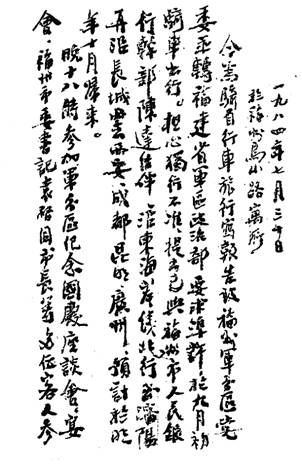 一九八四年七月三十日
於福州烏山路寓所
今為騎自行車旅行寫報告致福州軍分區党
委並轉福建省軍區政治部要求準許於九月初
騎車出行。担心獨行不准,提出已與福州市人民銀
行幹部陳達结伴 沿東海岸线北行至瀋陽
再沿長城西安、成都昆明廣州,預計於明
年十月歸來。
晚十八時参加軍分區纪念國慶座談會、宴
會。福州市委書記袁啟市長等位客人参